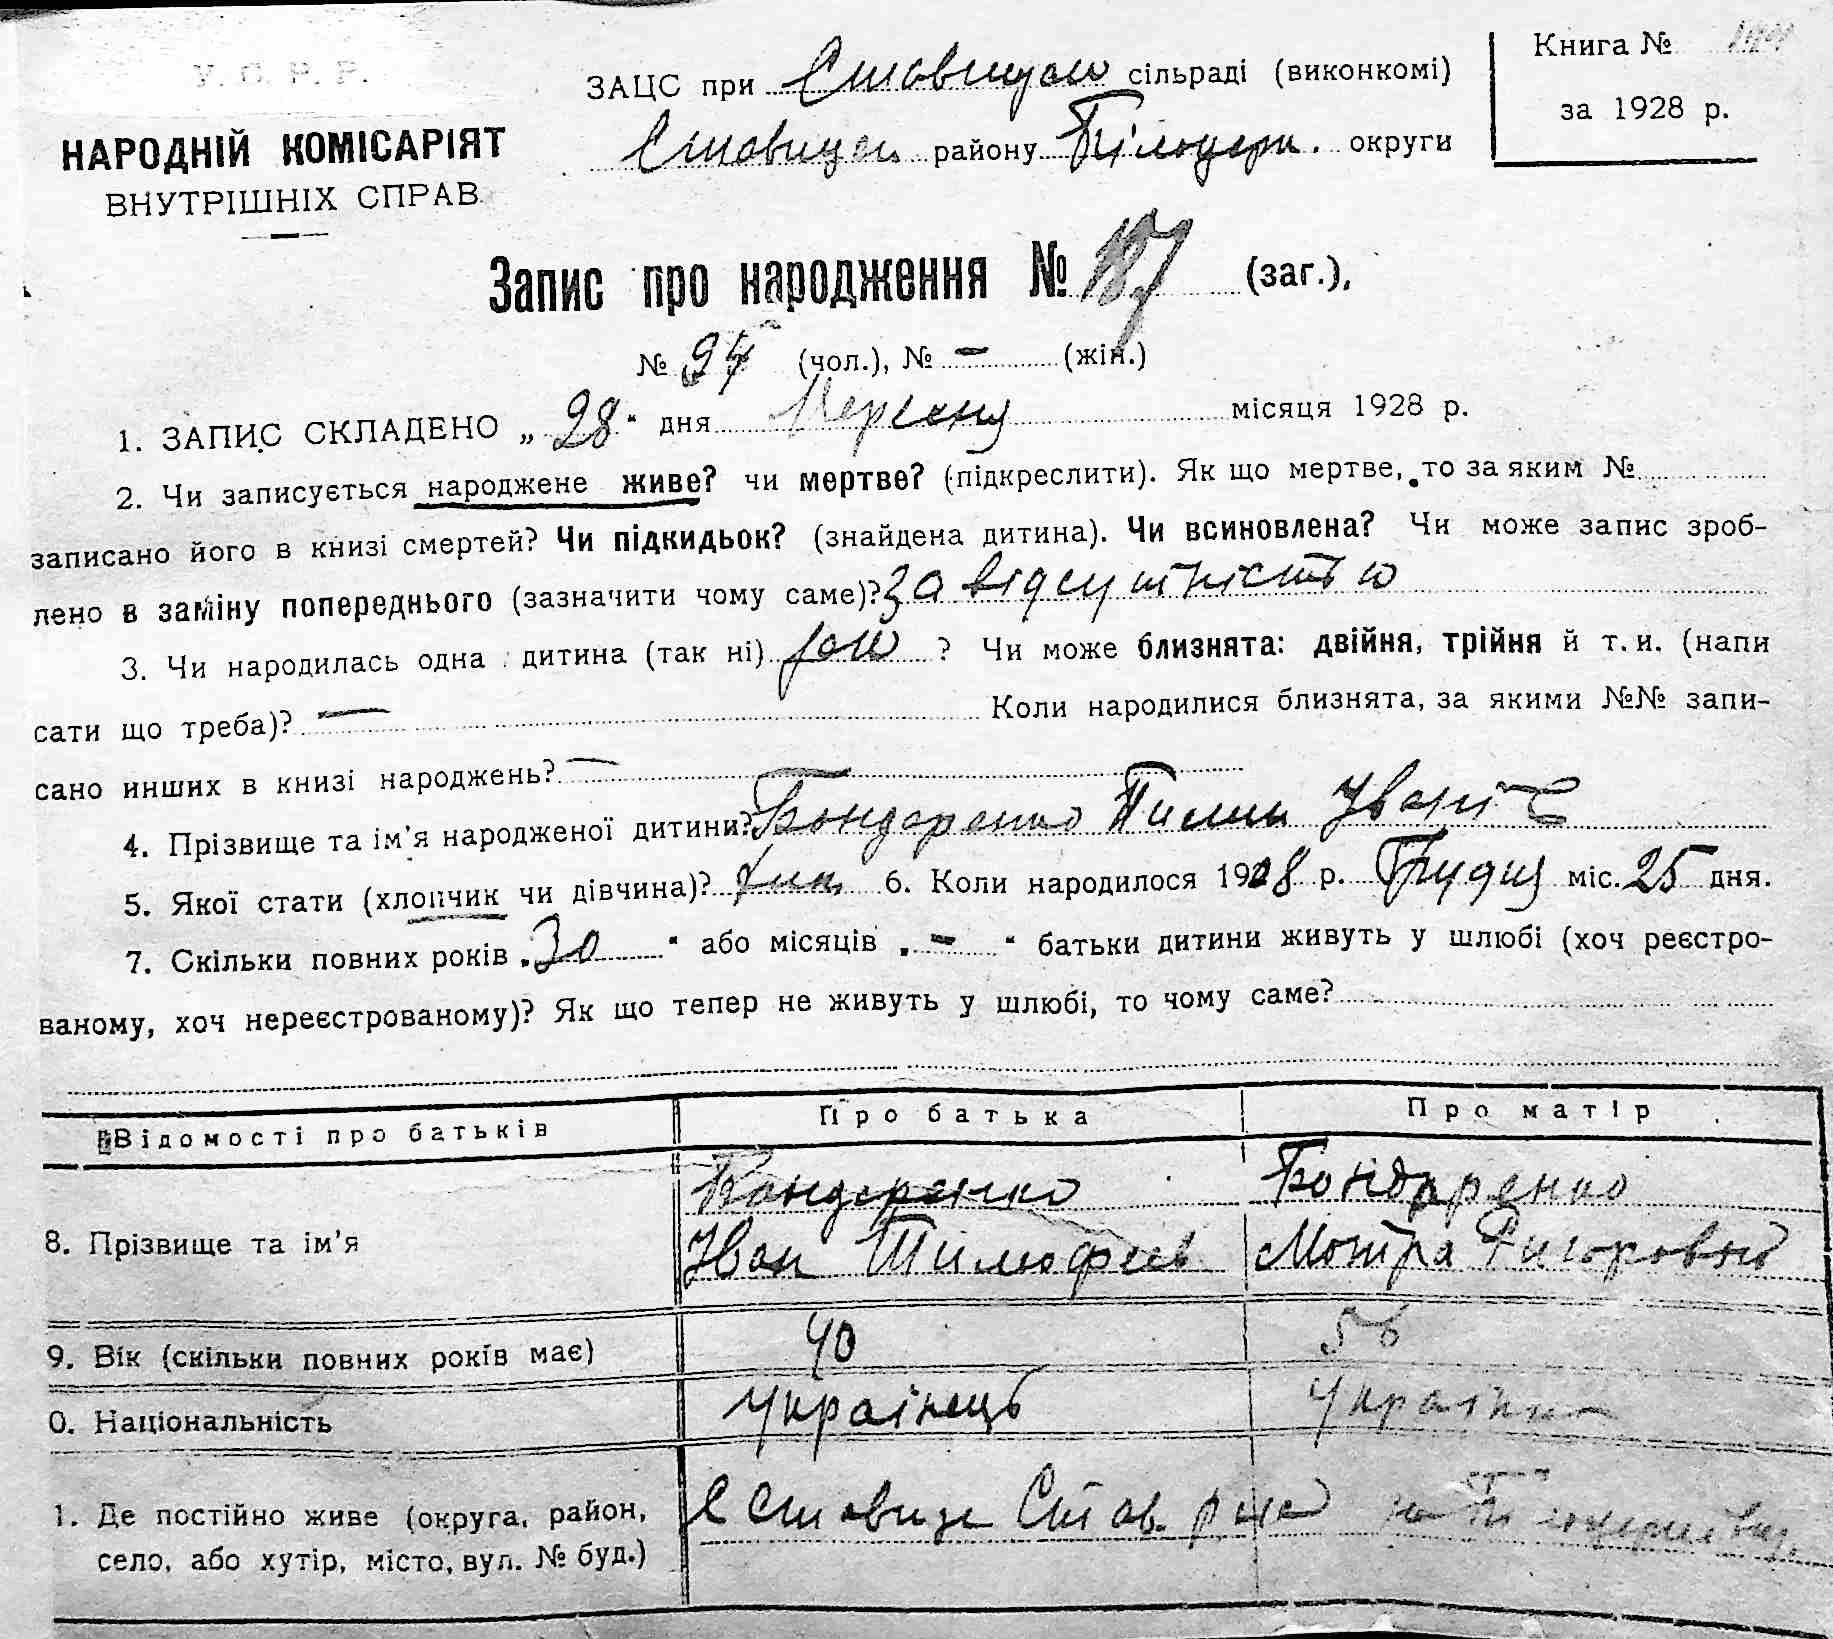 У. С. Р. Р.
НАРОДНІЙ КОМІСАРІЯТ
ВНУТРІШНІХ СПРАВ
ЗАЦС при Ставищан сільраді (виконкомі)
Ставищан району Білоцерк. округи
Книга №
за 1928 р.
Запис про народження № 187 (заг.),
№ 94 (чол.), № – (жін.)
1. ЗАПИС СКЛАДЕНО „ 28 “ дня місяця 1928 р.
2. Чи записується народжене живе? чи мертве? (підкреслити). Як що мертве, то за яким №
записано його в книзі смертей? Чи підкидьок? (знайдена дитина). Чи всиновлена? Чи може запис зроб-
лено в заміну попереднього (зазначити чому саме)? За відсутністю
3. Чи народилась одна дитина (так ні) ? Чи може близнята: двійня, трійня й т. и. (напи
сати що треба)? — Коли народилися близнята, за якими №№ запи-
сано инших в книзі народжень? —
4. Прізвище та ім'я народженої дитини? Бондаренко Пилип Іванів
5. Якої стати (хлопчик чи дівчина)? 6. Коли народилося 1908 р. Грудня міс. 25 дня.
7. Скільки повних років „ 30 “ або місяців „ – “ батьки дитини живуть у шлюбі (хоч реєстро-
ваному, хоч нереєстрованому)? Як що тепер не живуть у шлюбі, то чому саме?
Відомості про батьків Про батька Про матір
Бондаренко Бондаренко
8. Прізвище та ім'я Іван Тимофеєв Мотря
9. Вік (скільки повних років має) 40 56
0. Національність Українець Українка
1. Де постійно живе (округа, район, с Ставище Став. р-на
село, або хутір, місто, вул. № буд.)